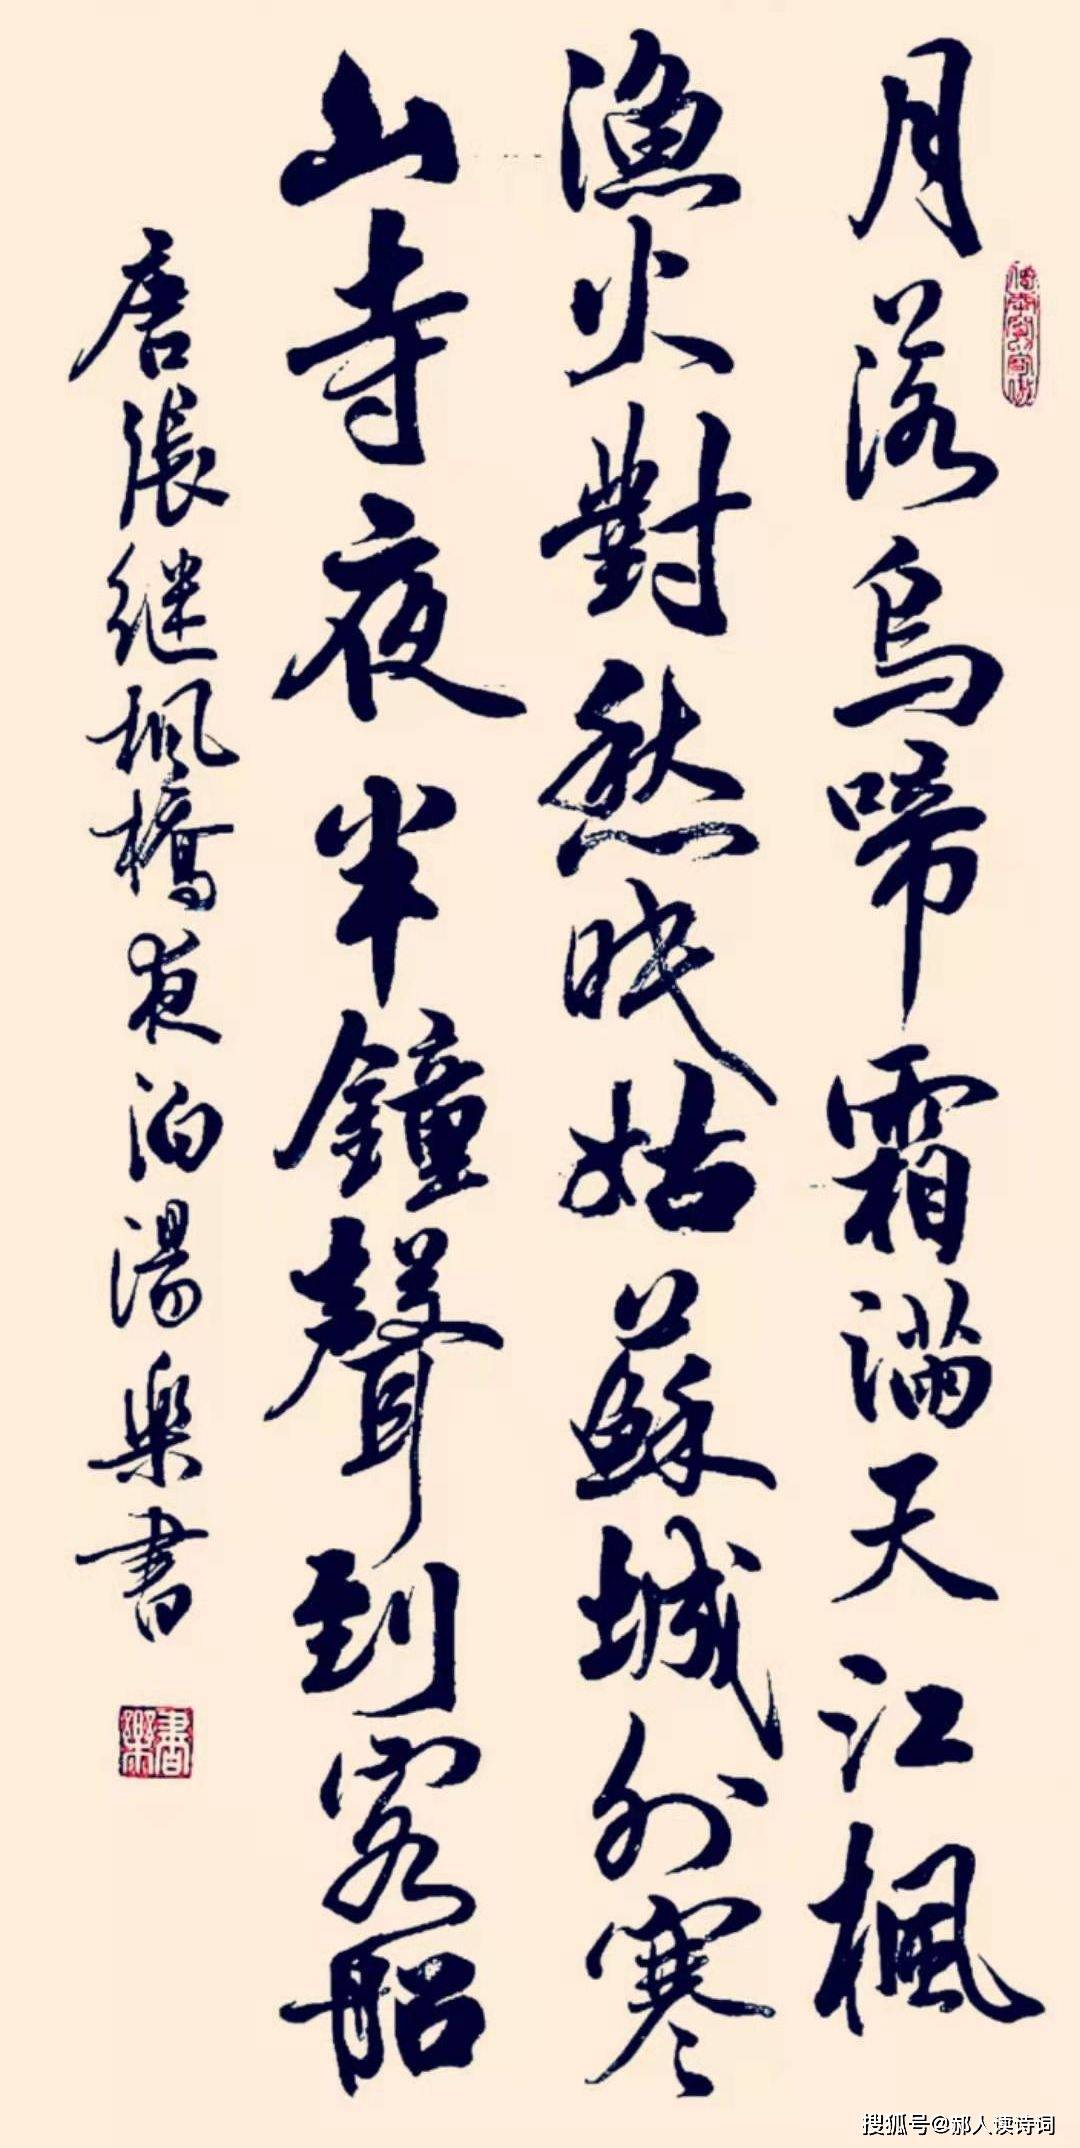 月落烏啼霜滿天江楓
漁火對愁眠姑蘇城外寒
山寺夜半鐘聲到客船
唐張继楓橋夜泊湯樂書
書樂
搜狐号@郝人读诗词